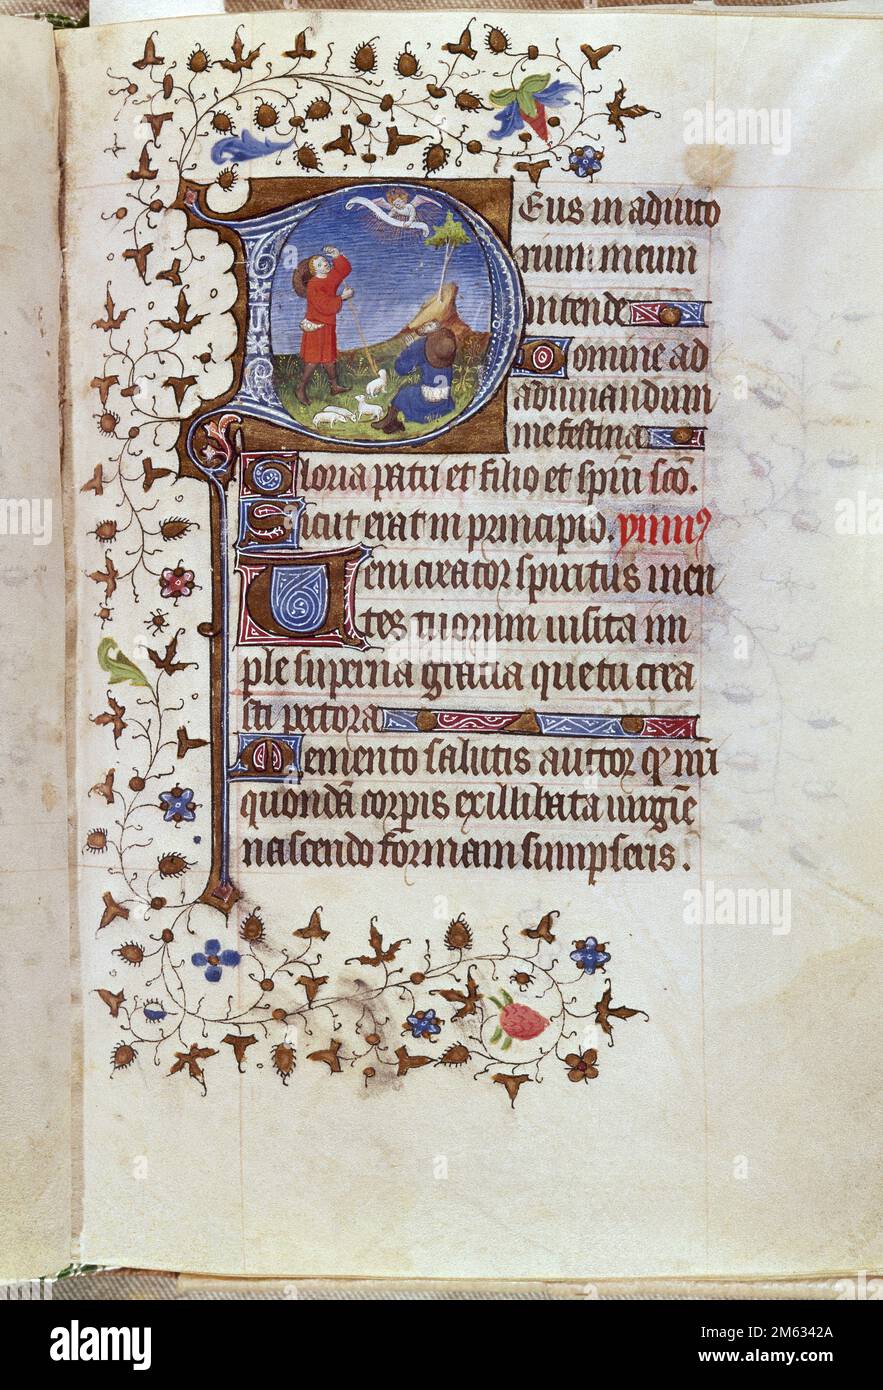 Deus in adiuto
rium meum
intende
Domine ad
adiuuandum
me festina
Gloria patri et filio et spiritu sco.
Sicut erat in principio. ymnus
Ueni creator spiritus men
tes tuorum uisita im
ple superna gratia que tu crea
sti pectora
Memento salutis auctor qd nri
quondam corpis ex illibata uirgine
nascendo formam sumpseris.
alamy
Image ID: 2M6342A
www.alamy.com